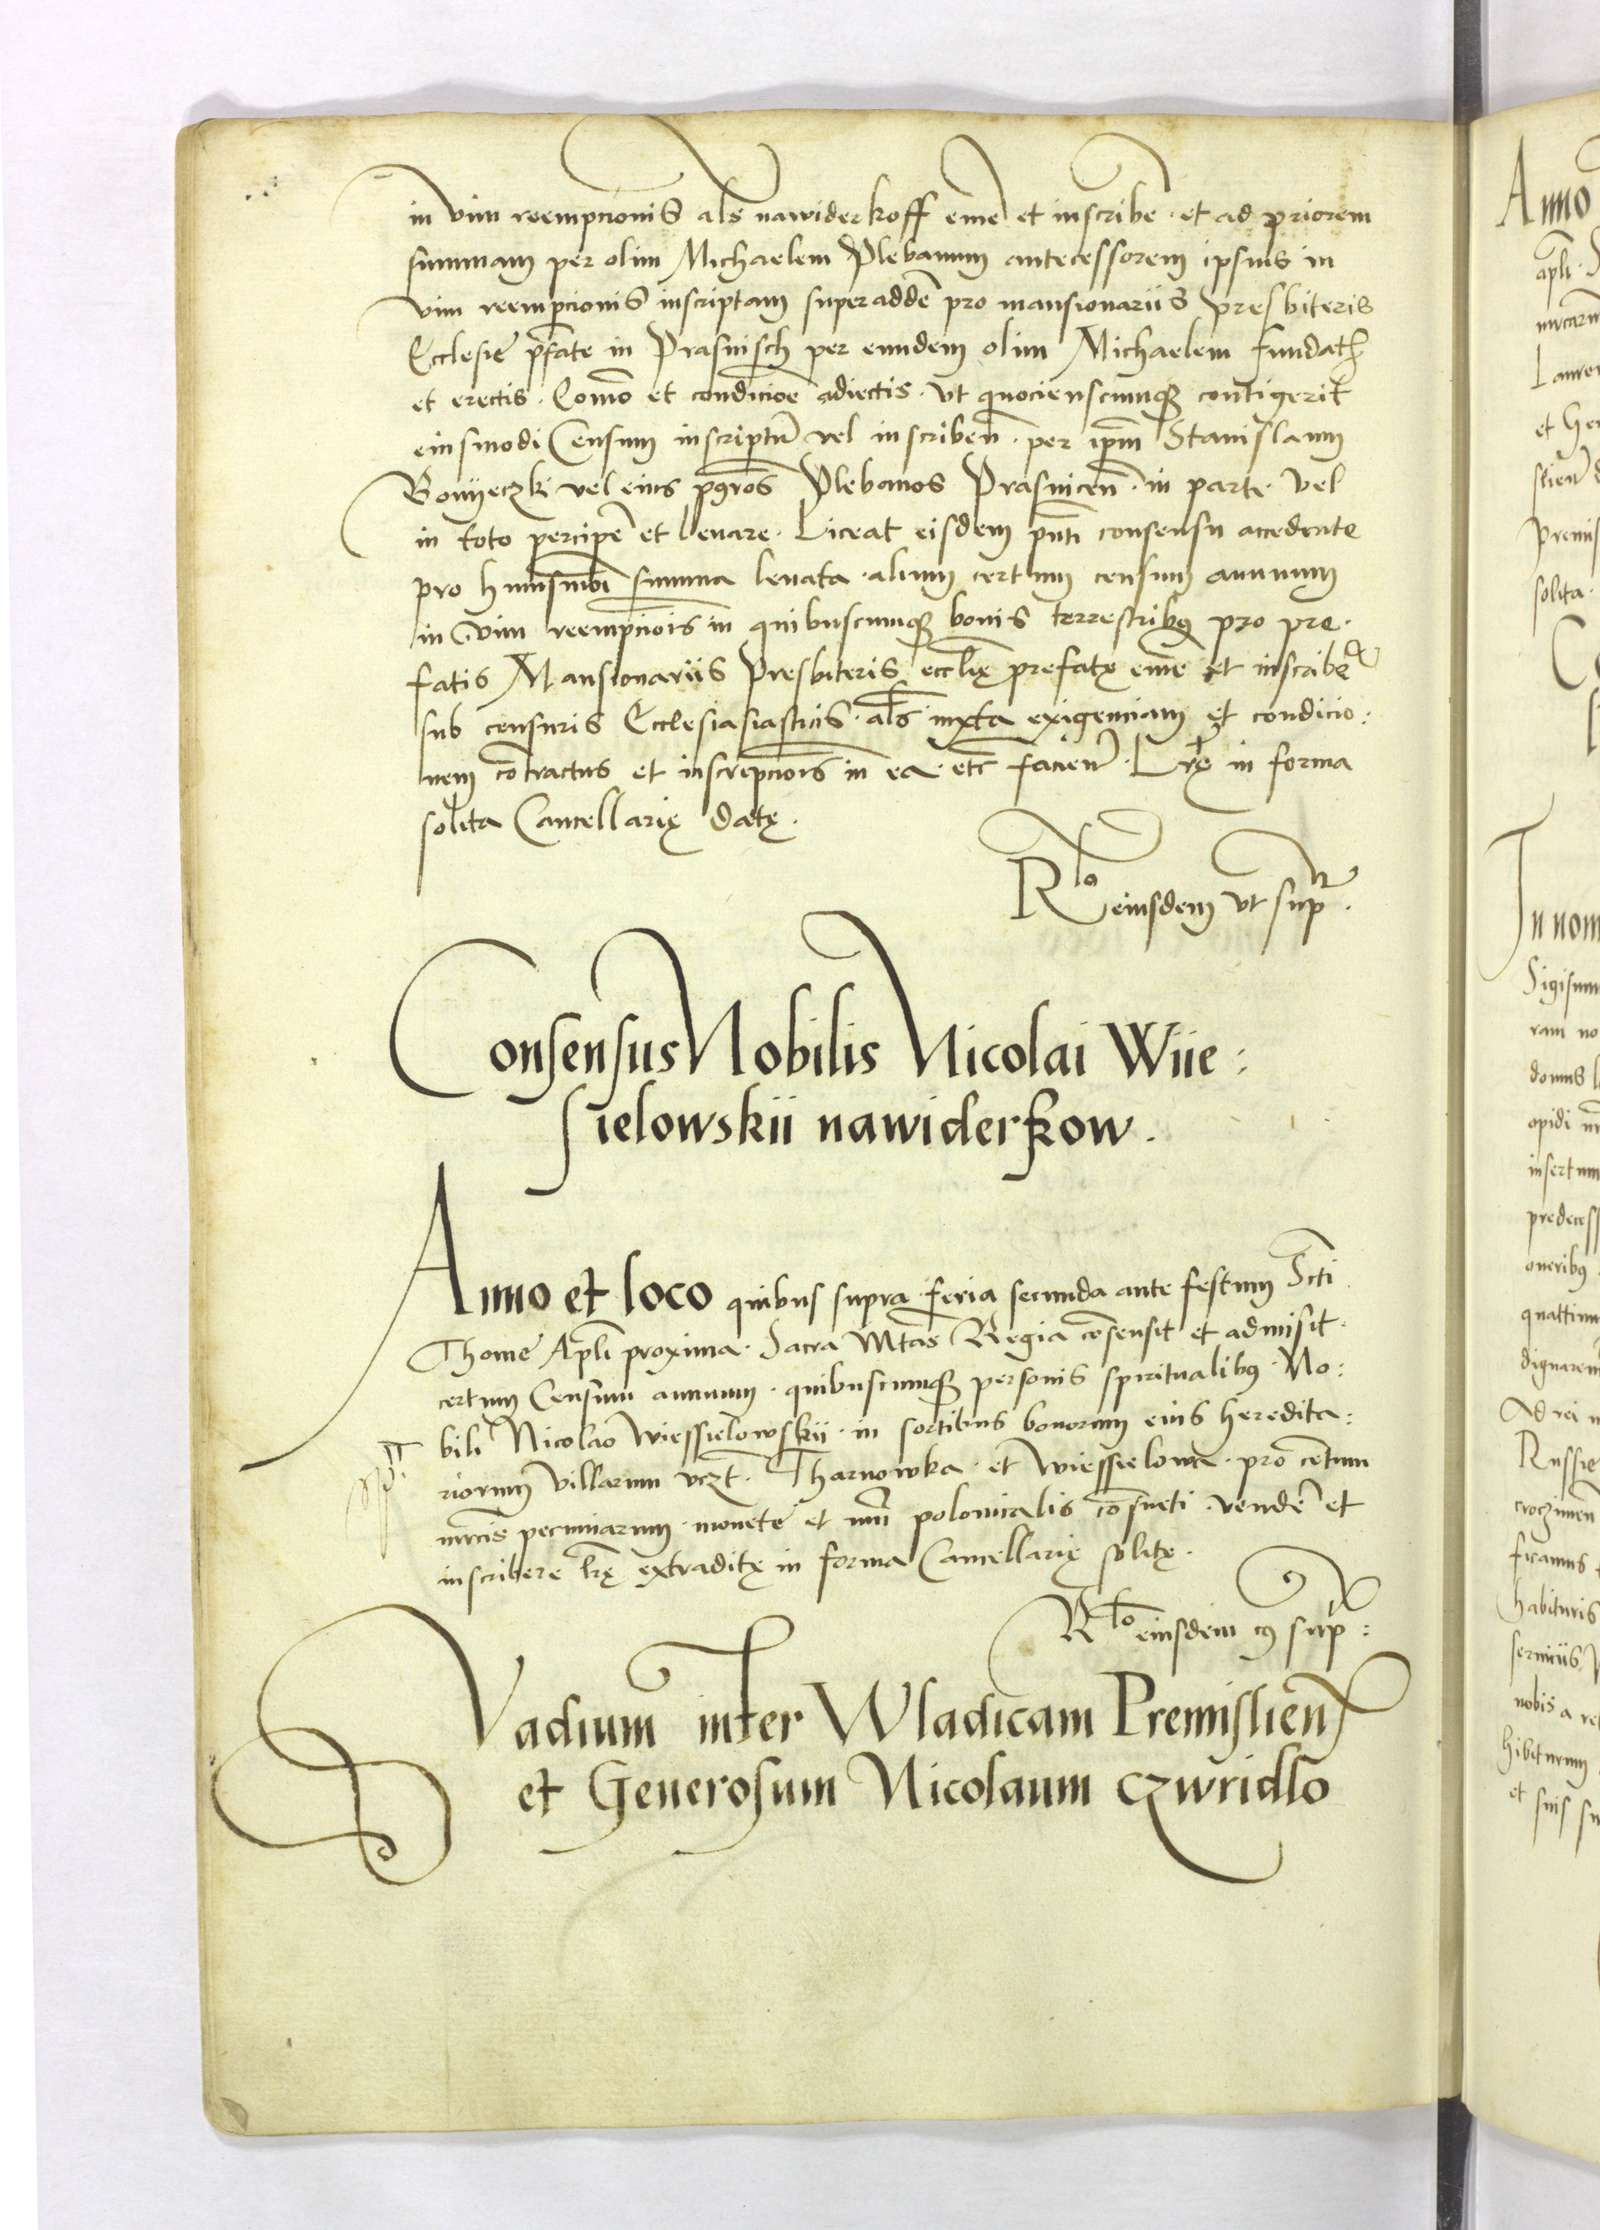 in vim reempcionis als nawiderkoff eme et inscribe. et ad priorem
summam per olim Michaelem Plebanum antecessorem ipsius in
vim reempcionis inscriptam superadde pro mansionariis presbiteris
Ecclesie pfate in Prasnisch per eundem olim Michaelem fundat
et erectis. Comō et condicioe adiectis. vt quocienscumq contigerit
eiusmodi Censum inscriptū vel inscriben. per ipm Stanislaum
Bonyeczki vel eius pgros Plebanos Prasnicen. in parte vel
in toto percipe et levare. Liceat eisdem pnti consensu accedente
pro huiusmoi summa levata. alium certum censum annuum
in vim reempciois in quibuscumq bonis terrestribq pro pre.
fatis Mansionariis Presbiteris eccłie prefatę eme et inscribe
sub censuris Ecclesiasiasticis. als iuxta exigenciam et condicio:
nem cotractus et inscripciois in ea. etc facien. Lrę in forma
solita Cancellarię datę.
Rlo eiusdem vt supr.
Consensus Nobilis Nicolai Wiie:
sielowskii nawiderkow.
Anno et loco quibus supra. feria secunda ante festum Scti
Thome Apli proxima. Sacra Mtas Regia cōsensit et admisit.
certum Censum annuum. quibuscumq personis spiritualibq. No:
bili Nicolao Wiessielowskii. in sortibus bonorum eius heredita:
riorum villarum vczt. Tharnowka. et Wiessielowa. pro centum
mrcis pecuniarum. monete et nūi polonicalis cōsueti. vendē et
inscribere lrę extraditę in forma Cancellarię solitę.
Rlo eiusdem cq supr:
Vadium inter Wladicam Premislien
et Generosum Nicolaum Czwridlo
Anno
apli.
Lauren
et
premis
solita.
In nom
Sigismun
ram no
domus
opidi
insertum
predecess
oneribq
quattuor
dignarem
Ad rei
Russie
habituris
serviiis
nobis a
hibiturum
et suis